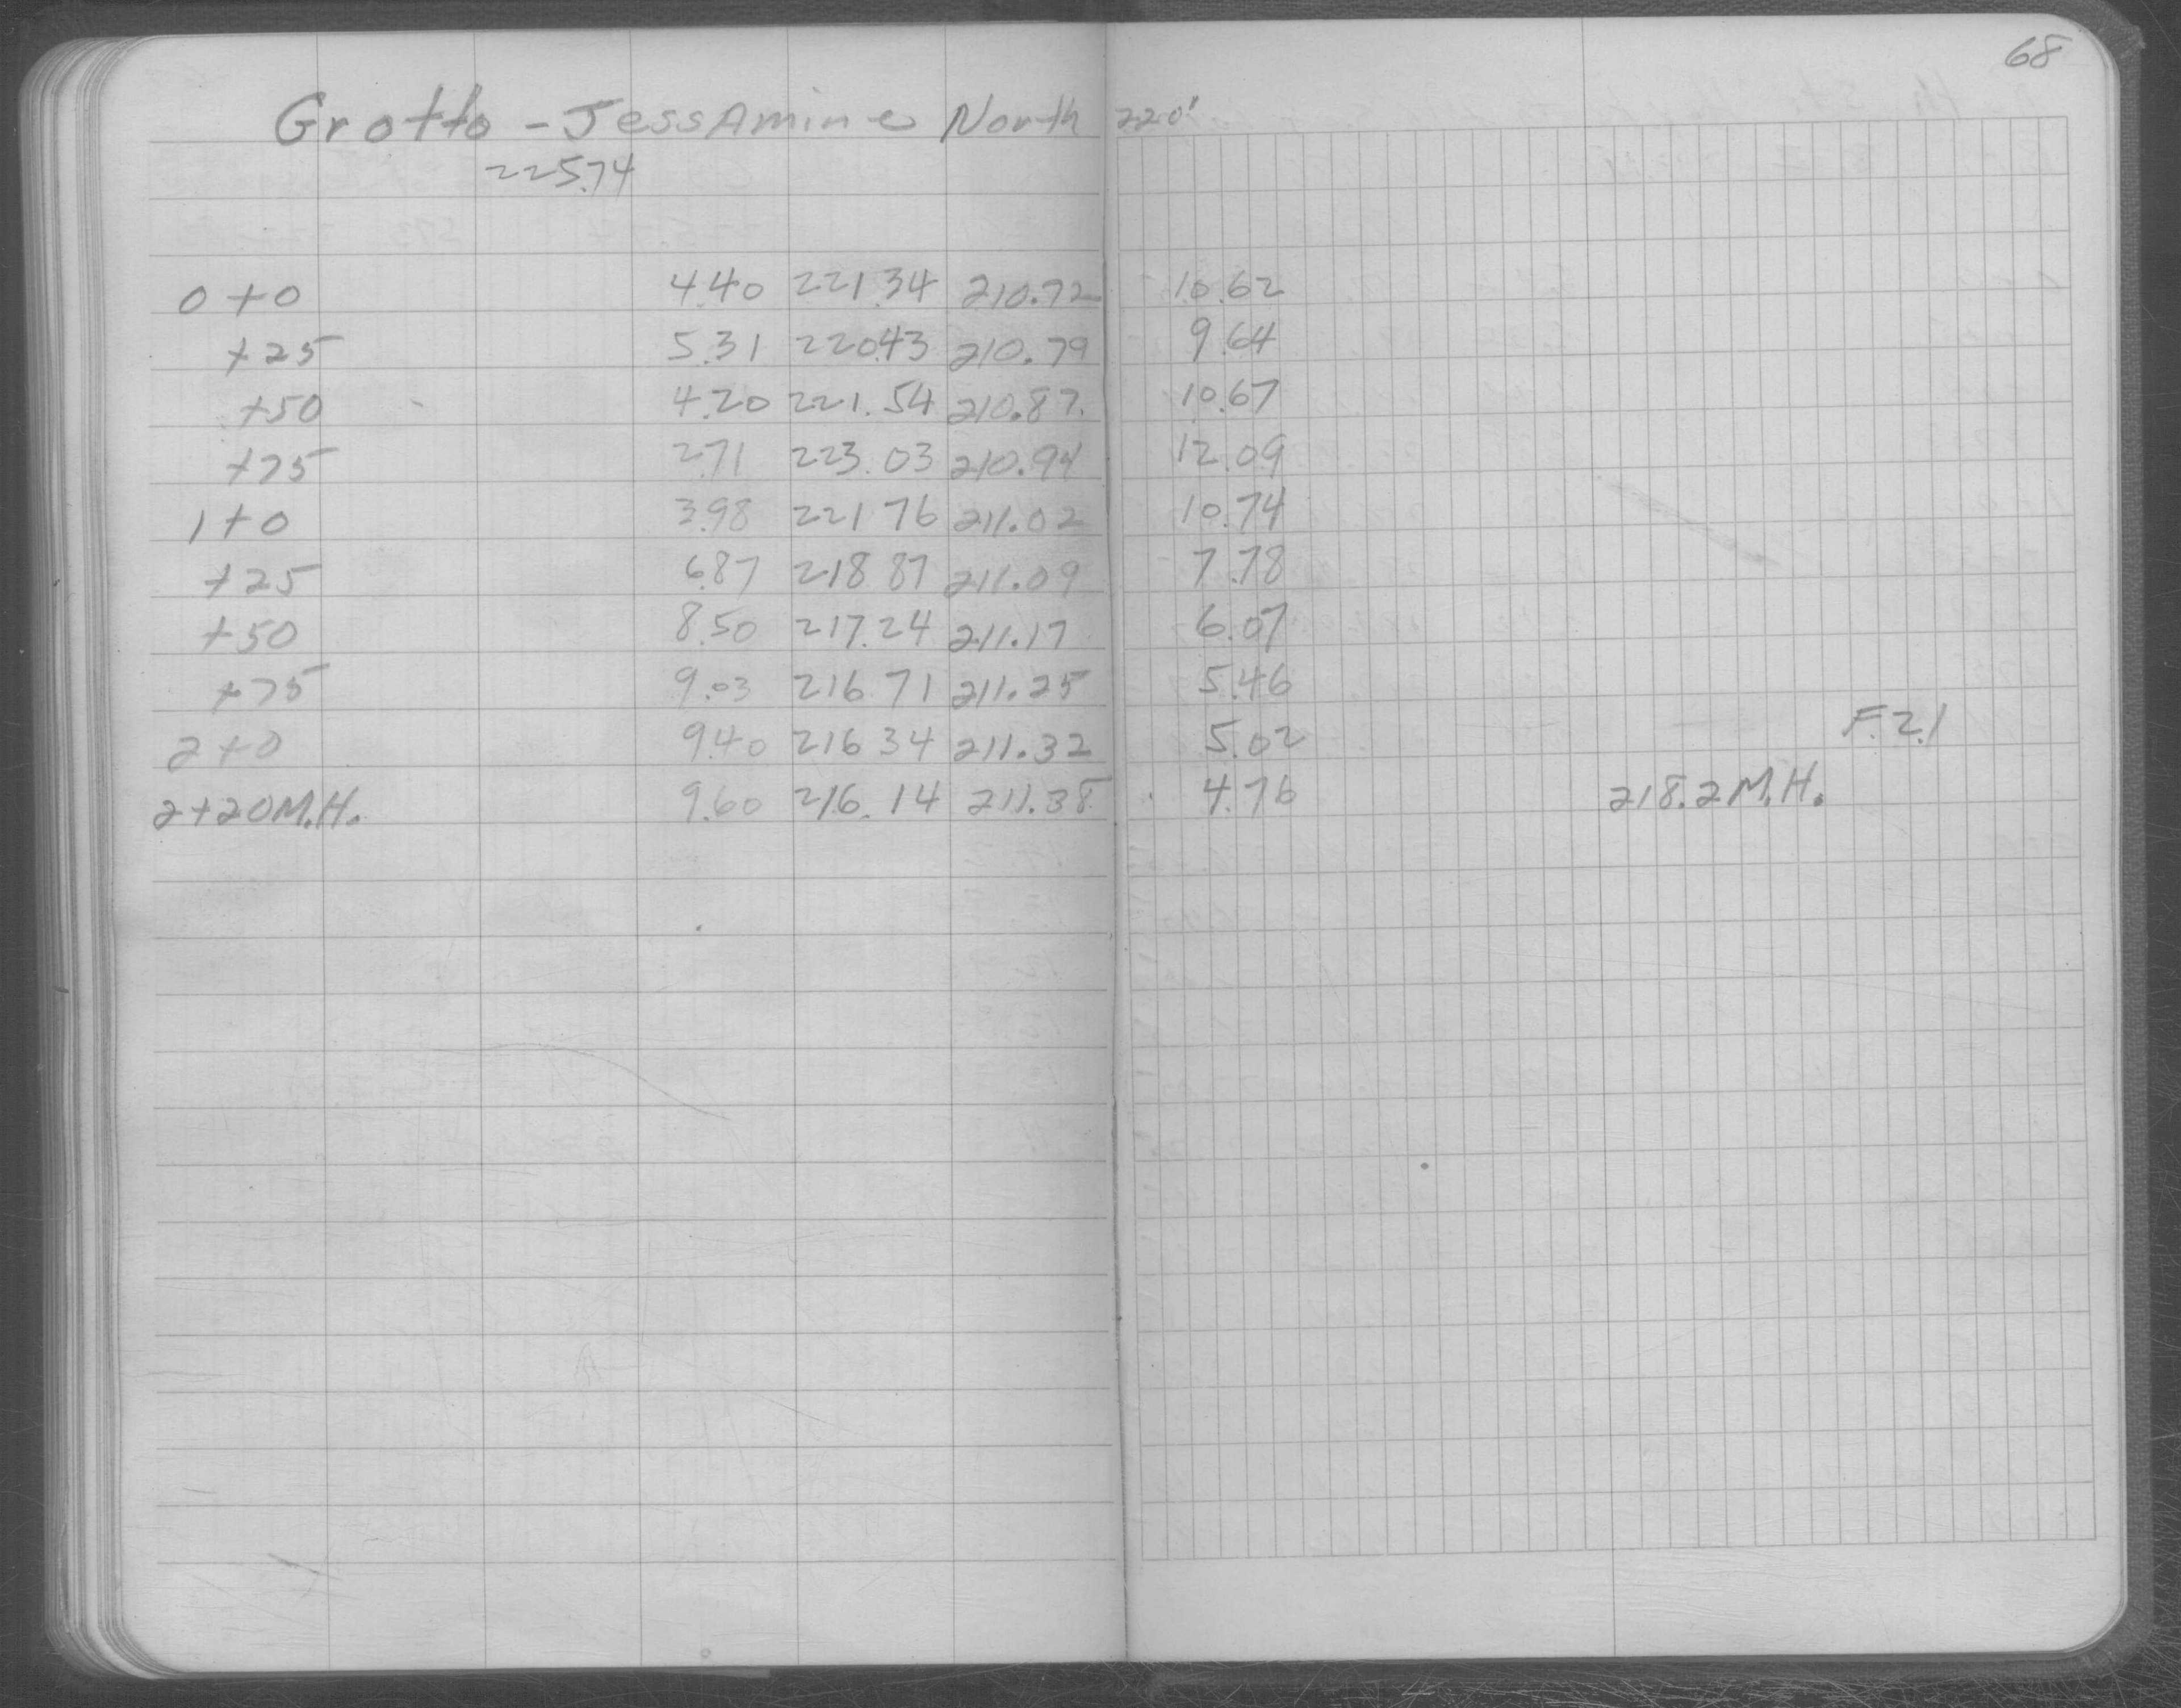 68
Grotto - JessAmine North 220'
225.74
0+0 4.40 221.34 210.72 10.62
+25 5.31 220.43 210.79 9.64
+50 4.20 221.54 210.87 10.67
+75 2.71 223.03 210.94 12.09
1+0 3.98 221 76 211.02 10.74
+25 6.87 218 87 211.09 7.78
+50 8.50 217.24 211.17 6.07
+75 9.03 216 71 211.25 5.46
2+0 9.40 216 34 211.32 5.02 F. 2.1
2+20 M.H. 9.60 216.14 211.38 4.76 218.2 M.H.